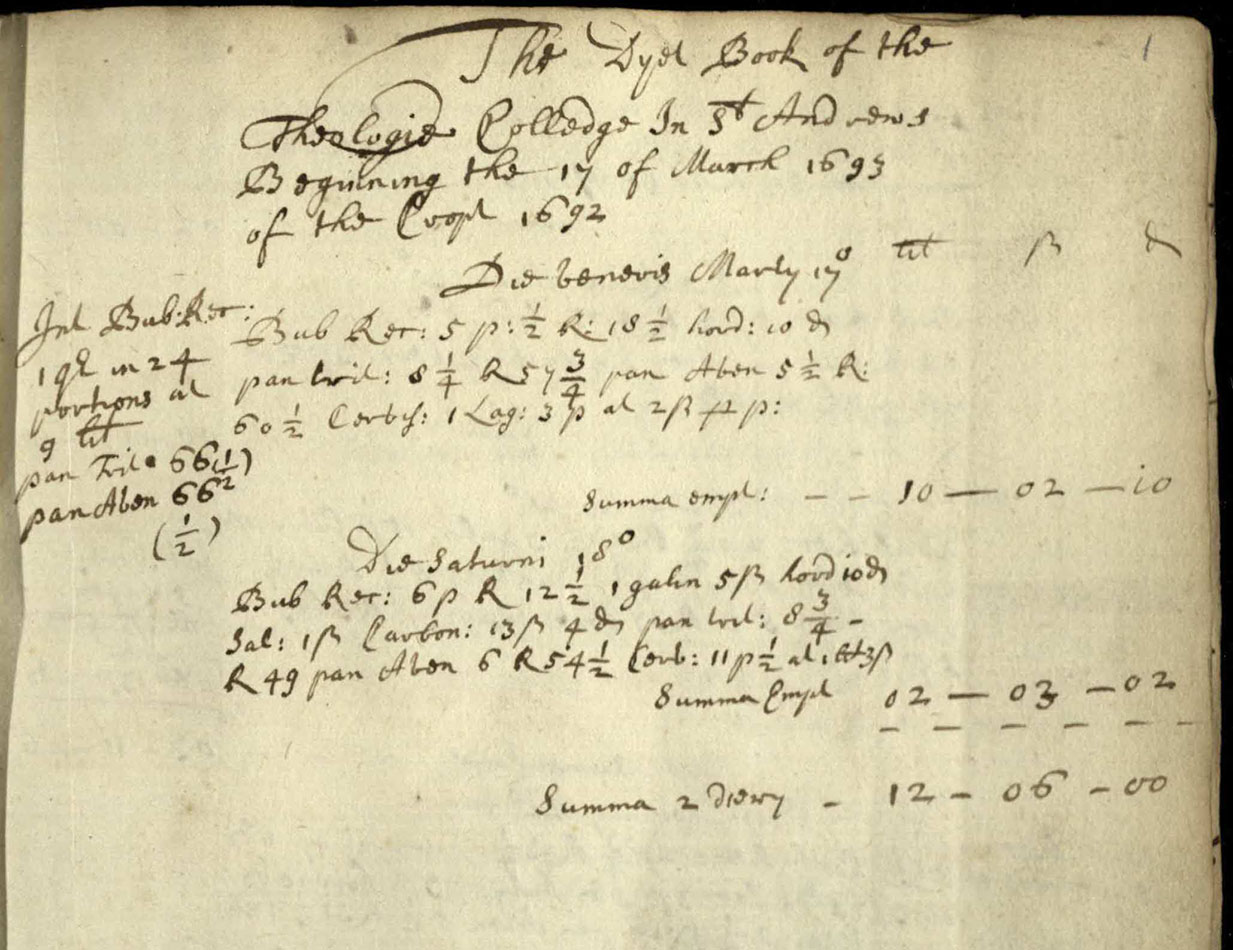 1
The Dyet Book of the
Theologie Colledge In St Andrews
Beginning the 17 of March 1693
of the Cropt 1692
Die veneris Martij 17o lib ß d
Int Bub: Rec:
1 qt in 24
portions at
9 lib
pan Trit: 66(1/2)
pan Aven 66
(1/2)
Bub Rec: 5 p: 1/2 R: 18 1/2 hord: 10 d
pan trit: 8 1/4 R 57 3/4 pan Aven 5 1/2 R:
60 1/2 Cervis: 1 Lag: 3 p at 2ß p:
Summa empt: - - 10 — 02 — 10
Die Saturni 18o
Bub Rec: 6 p R 12 1/2 1 galin 5ß hord 10 d
Sal: 1ß Carbon: 13ß 4 d pan trit: 8 3/4 -
R 49 pan Aven 6 R 54 1/2 Cerv: 11 p 1/2 at 1 lib 3ß
Summa Empt 02 — 03 — 02
Summa 2 dierum - 12 - 06 - 00